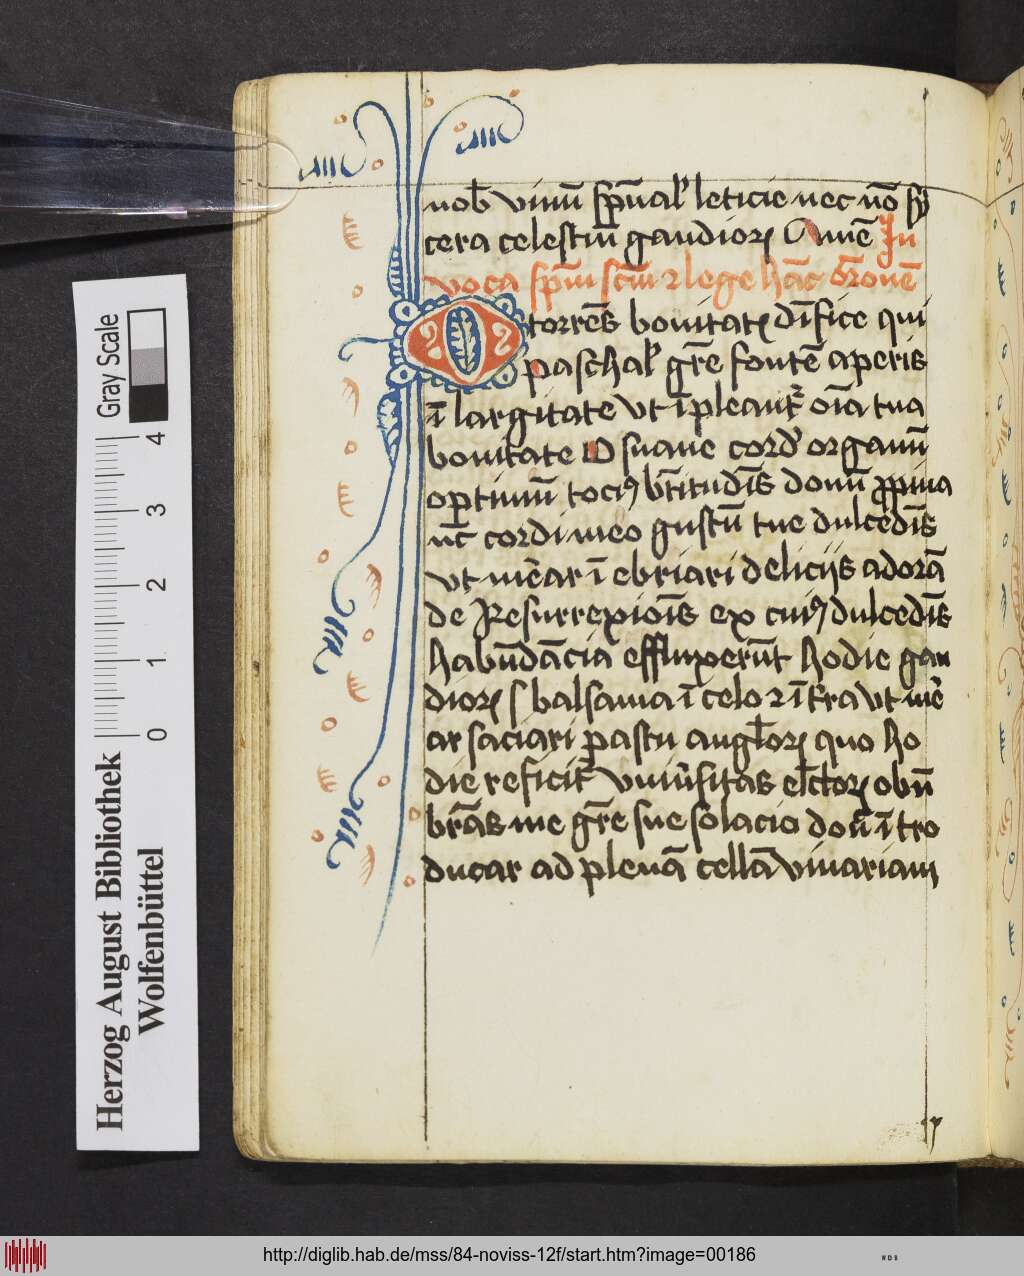 nob̄ vinū sp̄ūal' leticie nec nō sy
cera celestiū gaudioꝝ Amē In
voca sp̄m sc̄m ⁊ lege hāc or̄onē
O torrēs bonitatꝭ dīfice qui
paschal' gr̄e fontē aperis
ī largitate vt īpleant᷑ oīa tua
bonitate O suaue cord' organū
optimū tociꝰ bt̄itudīs donū ꝓpina
nc̄ cordi meo gustū tue dulcedīs
vt mēar ī ebriari deliciis adorā
de Resurrexioīs ex cuiꝰ dulcedīs
habūdācia effluxerūt hodie gau
dioꝝ balsama ī celo ⁊ ī tr̄a vt mē
ar saciari pastu angl̄oꝝ quo ho
die reficit᷑ vniūsitas el̄ctoꝝ obū
brās me gr̄e sue solacio doū ī tro
ducar ad plenā cellā vinariam
Gray Scale
4
3
2
1
0
Herzog August Bibliothek
Wolfenbüttel
http://diglib.hab.de/mss/84-noviss-12f/start.htm?image=00186